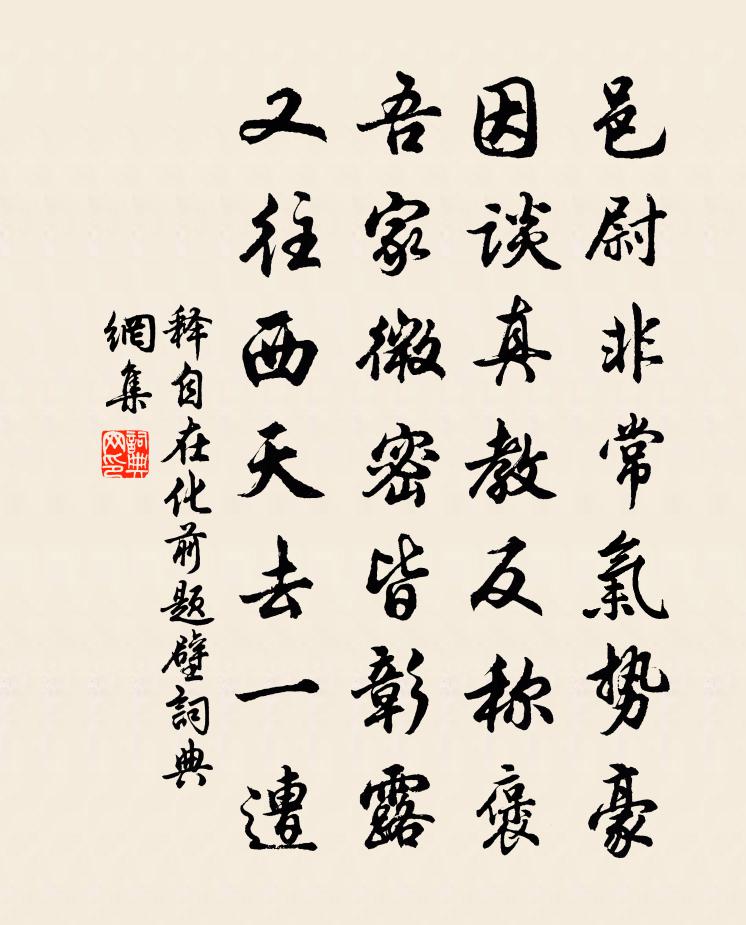 邑尉非常氣势豪
因谈真教反称褒
吾家微密皆彰露
又往西天去一遭
释自在化前题壁詞典
網集
詞典网印